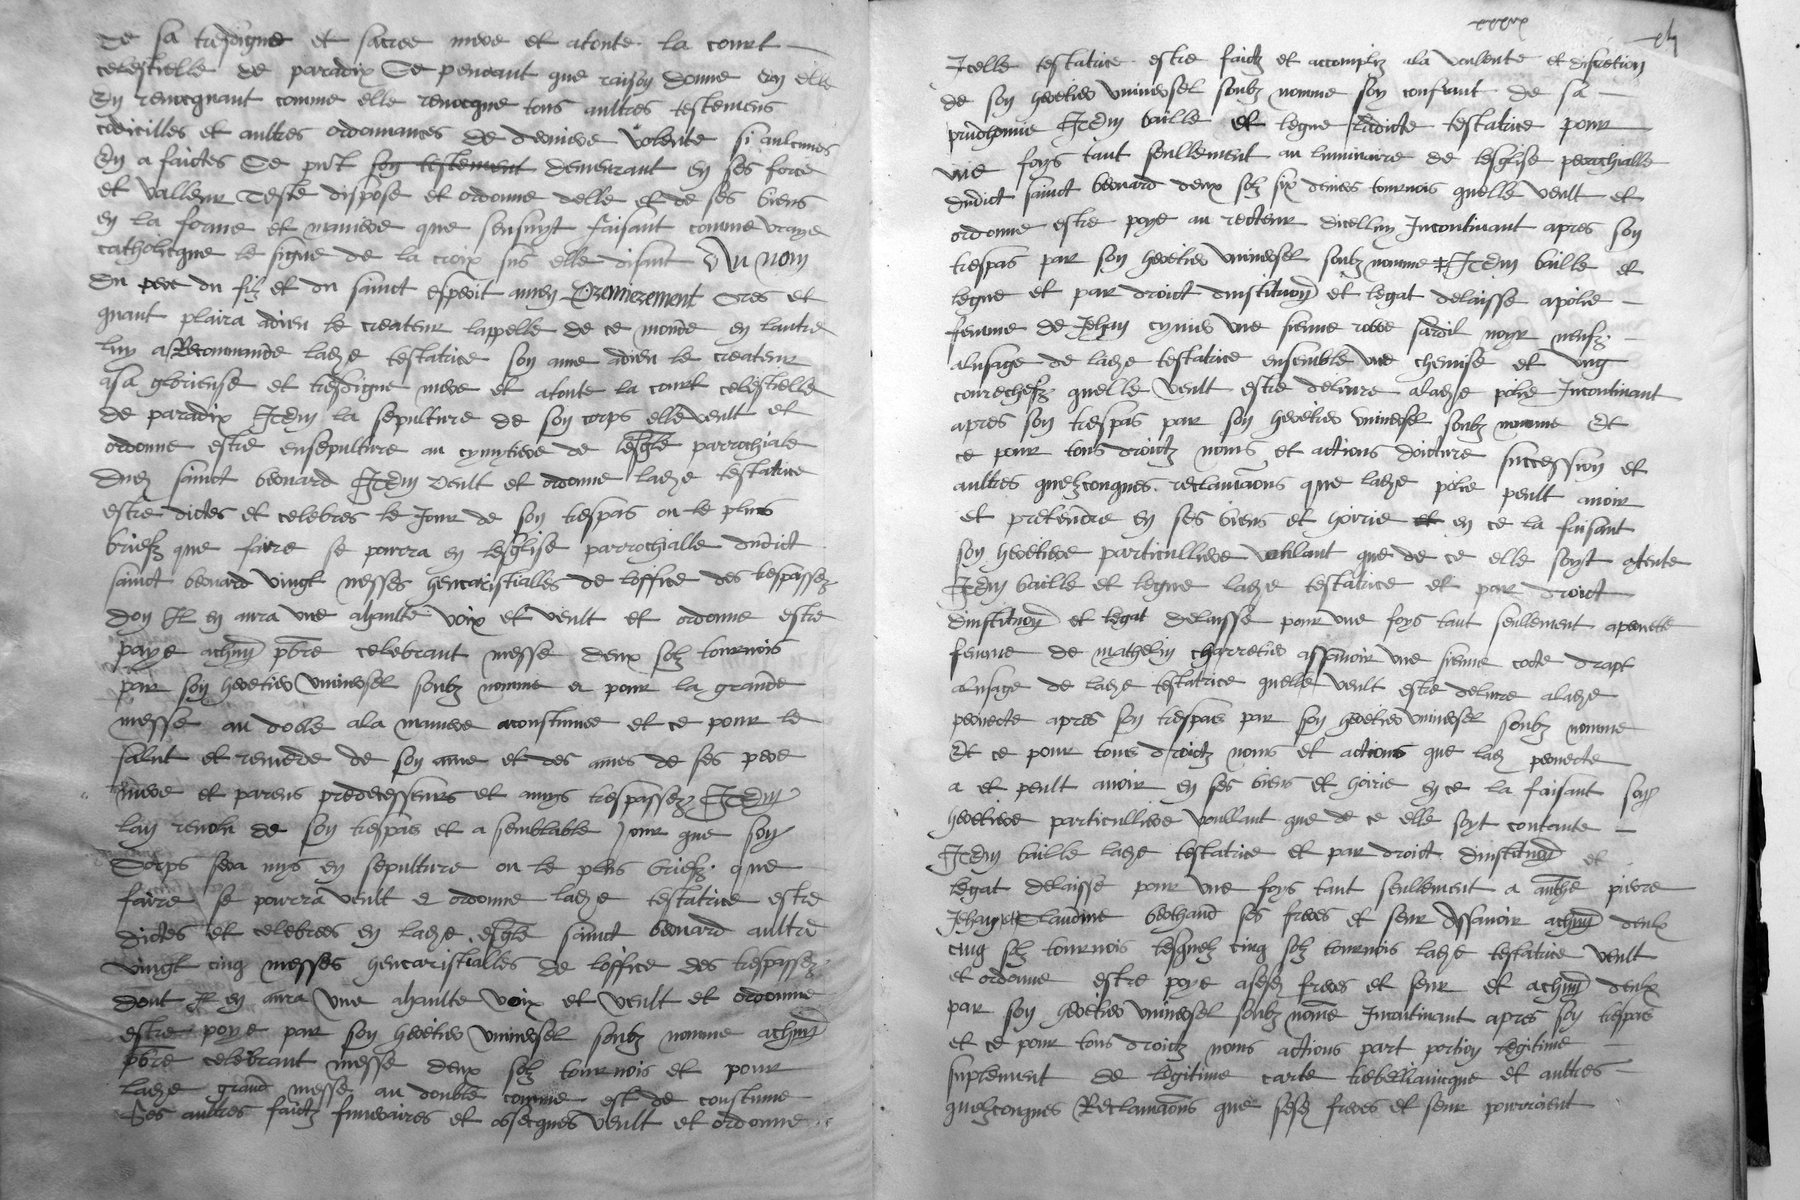 De sa tresdigne et sacree mere et atoute la court
celestielle de paradix Ce pendant que raison domne en elle
En revocquant comme elle revocque tous aultres testemens
codicilles et aultres ordonnances de derniere volente si aulcunes
En a faictes Ce pnt son testement demeurant en ses force
et valleur Teste dispose et ordonne delle et de ses biens
en la forme et maniere que sensuyt faisant comme vraye
catholicque le signe de la croix sus elle disant Au nom
Du pere du filz et du sainct esperit amen Premierement Tres et
quant plaira adieu le createur lappelle de ce monde en lautre
luy a Recommande ladze testatrice son ame adieu le createur
asa glorieuse et tresdigne mere et atoute la court celestielle
de paradix Item la sepulture de son corps elle veult et
ordonne estre ensepulture au cymytiere de lesgle parrochiale
dud sainct beouard Item Veult et ordonne ladze testatrice
estre dictes et celebres le Jour de son trespas ou le plus
briefz que faire se pourra en lesglise parrochialle dudict
sainct beouard vingt messes heucaristialles de loffice des trespassez
don Il en aura une ahaulte voix et veult et ordonne estre
paye achun pbre celebrant messe deux solz tournois
par son heretier universel soubz nomme et pour la grande
messe au doble ala maniere acoustumee et ce pour le
salut et remede de son ame et des ames de ses pere
mere et parens predecesseurs et amys trespassez Item
lan revolu de son trespas et a semblable Jour que son
Corps sera mys en sepulture ou le plus briefz que
faire se pourra veult et ordonne ladze testatrice estre
dictes et celebrees en ladze esgle sainct beouard aultre
vingt cinq messes heucaristialles de loffice des trespassez
dont Il en aura une ahaulte voix et veult et ordonne
estre poye par son heretier universel soubz nomme achun
pbre celebrant messe deux solz tournois et pour
ladze grand messe au double comme est de coustume
Ses aultres faictz funeraires et obsecques veult et ordonne
Icelle testatrice estre faictz et accompliz ala voulente et discretion
de son heretier universel soubz nomme soy confiant de sa
prudhomie Item baille et legue ladicte testatrice pour
une foys tant seullement au luminaire de lesglise parrochialle
dudict sainct beouard deux solz six deniers tournois quelle veult et
ordonne estre poye au recteur dicelluy Incontinant apres son
trespas par son heretier universel soubz nomme Item baille et
legue et par droict dinstitution et legat delaisse apolie
femme de Jehan une sienne robbe sardil noyr neufz
alusage de ladze testatrice ensemble une chemise et ung
couvrechefz quelle veult estre delivre aladze polie Incontinant
apres son trespas par son heretier universel soubz nomme Et
ce pour tous droictz noms et actions doicture succession et
aultres quelzconques reclamaons que ladze polie peult avoir
et pretendre en ses biens et hoirie et en ce la faisant
son heretiere particulliere voulant que de ce elle soyt contente
Item baille et legue ladze testatrice et par droict
dinstitution et legat delaisse pour une foys tant seullement a perrette
femme de mathelin charretier assavoir une sienne cote drapt
alusage de ladze testatrice quelle veult estre delivre aladze
perrecte apres son trespas par son heretier universel soubz nomme
Et ce pour tous droictz noms et actions que lad perrecte
a et peult avoir en ses biens et hoirie en ce la faisant son
heretiere particulliere voullant que de ce elle soyt contante
Item baille ladze testatrice et par droict dinstitution et
legat delaisse pour une foys tant seullement a anthe pierre
Jehan et Claudine ses freres et seur Assavoir achun deulx
cinq solz tournois lesquelz cinq solz tournois ladze testatrice veult
et ordonne estre poye asesd freres et seur et achun deulx
par son heretier universel soubz nome Incontinant apres son trespas
et ce pour tous droictz noms actions part portion legitime
suplement de legitime carte trebellianicque et aultres
quelzconques Reclamaons que sesd freres et seur pourroient